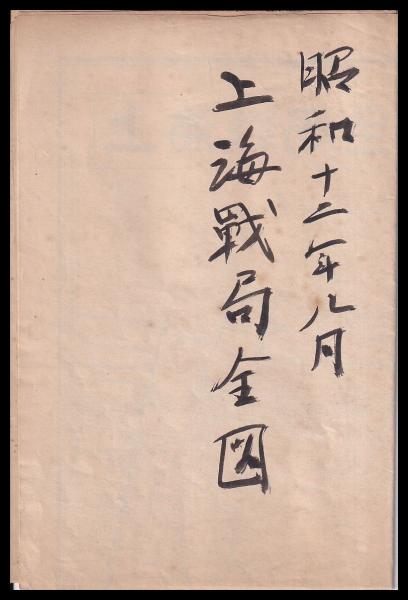 昭和十二年八月
上海戰局全図